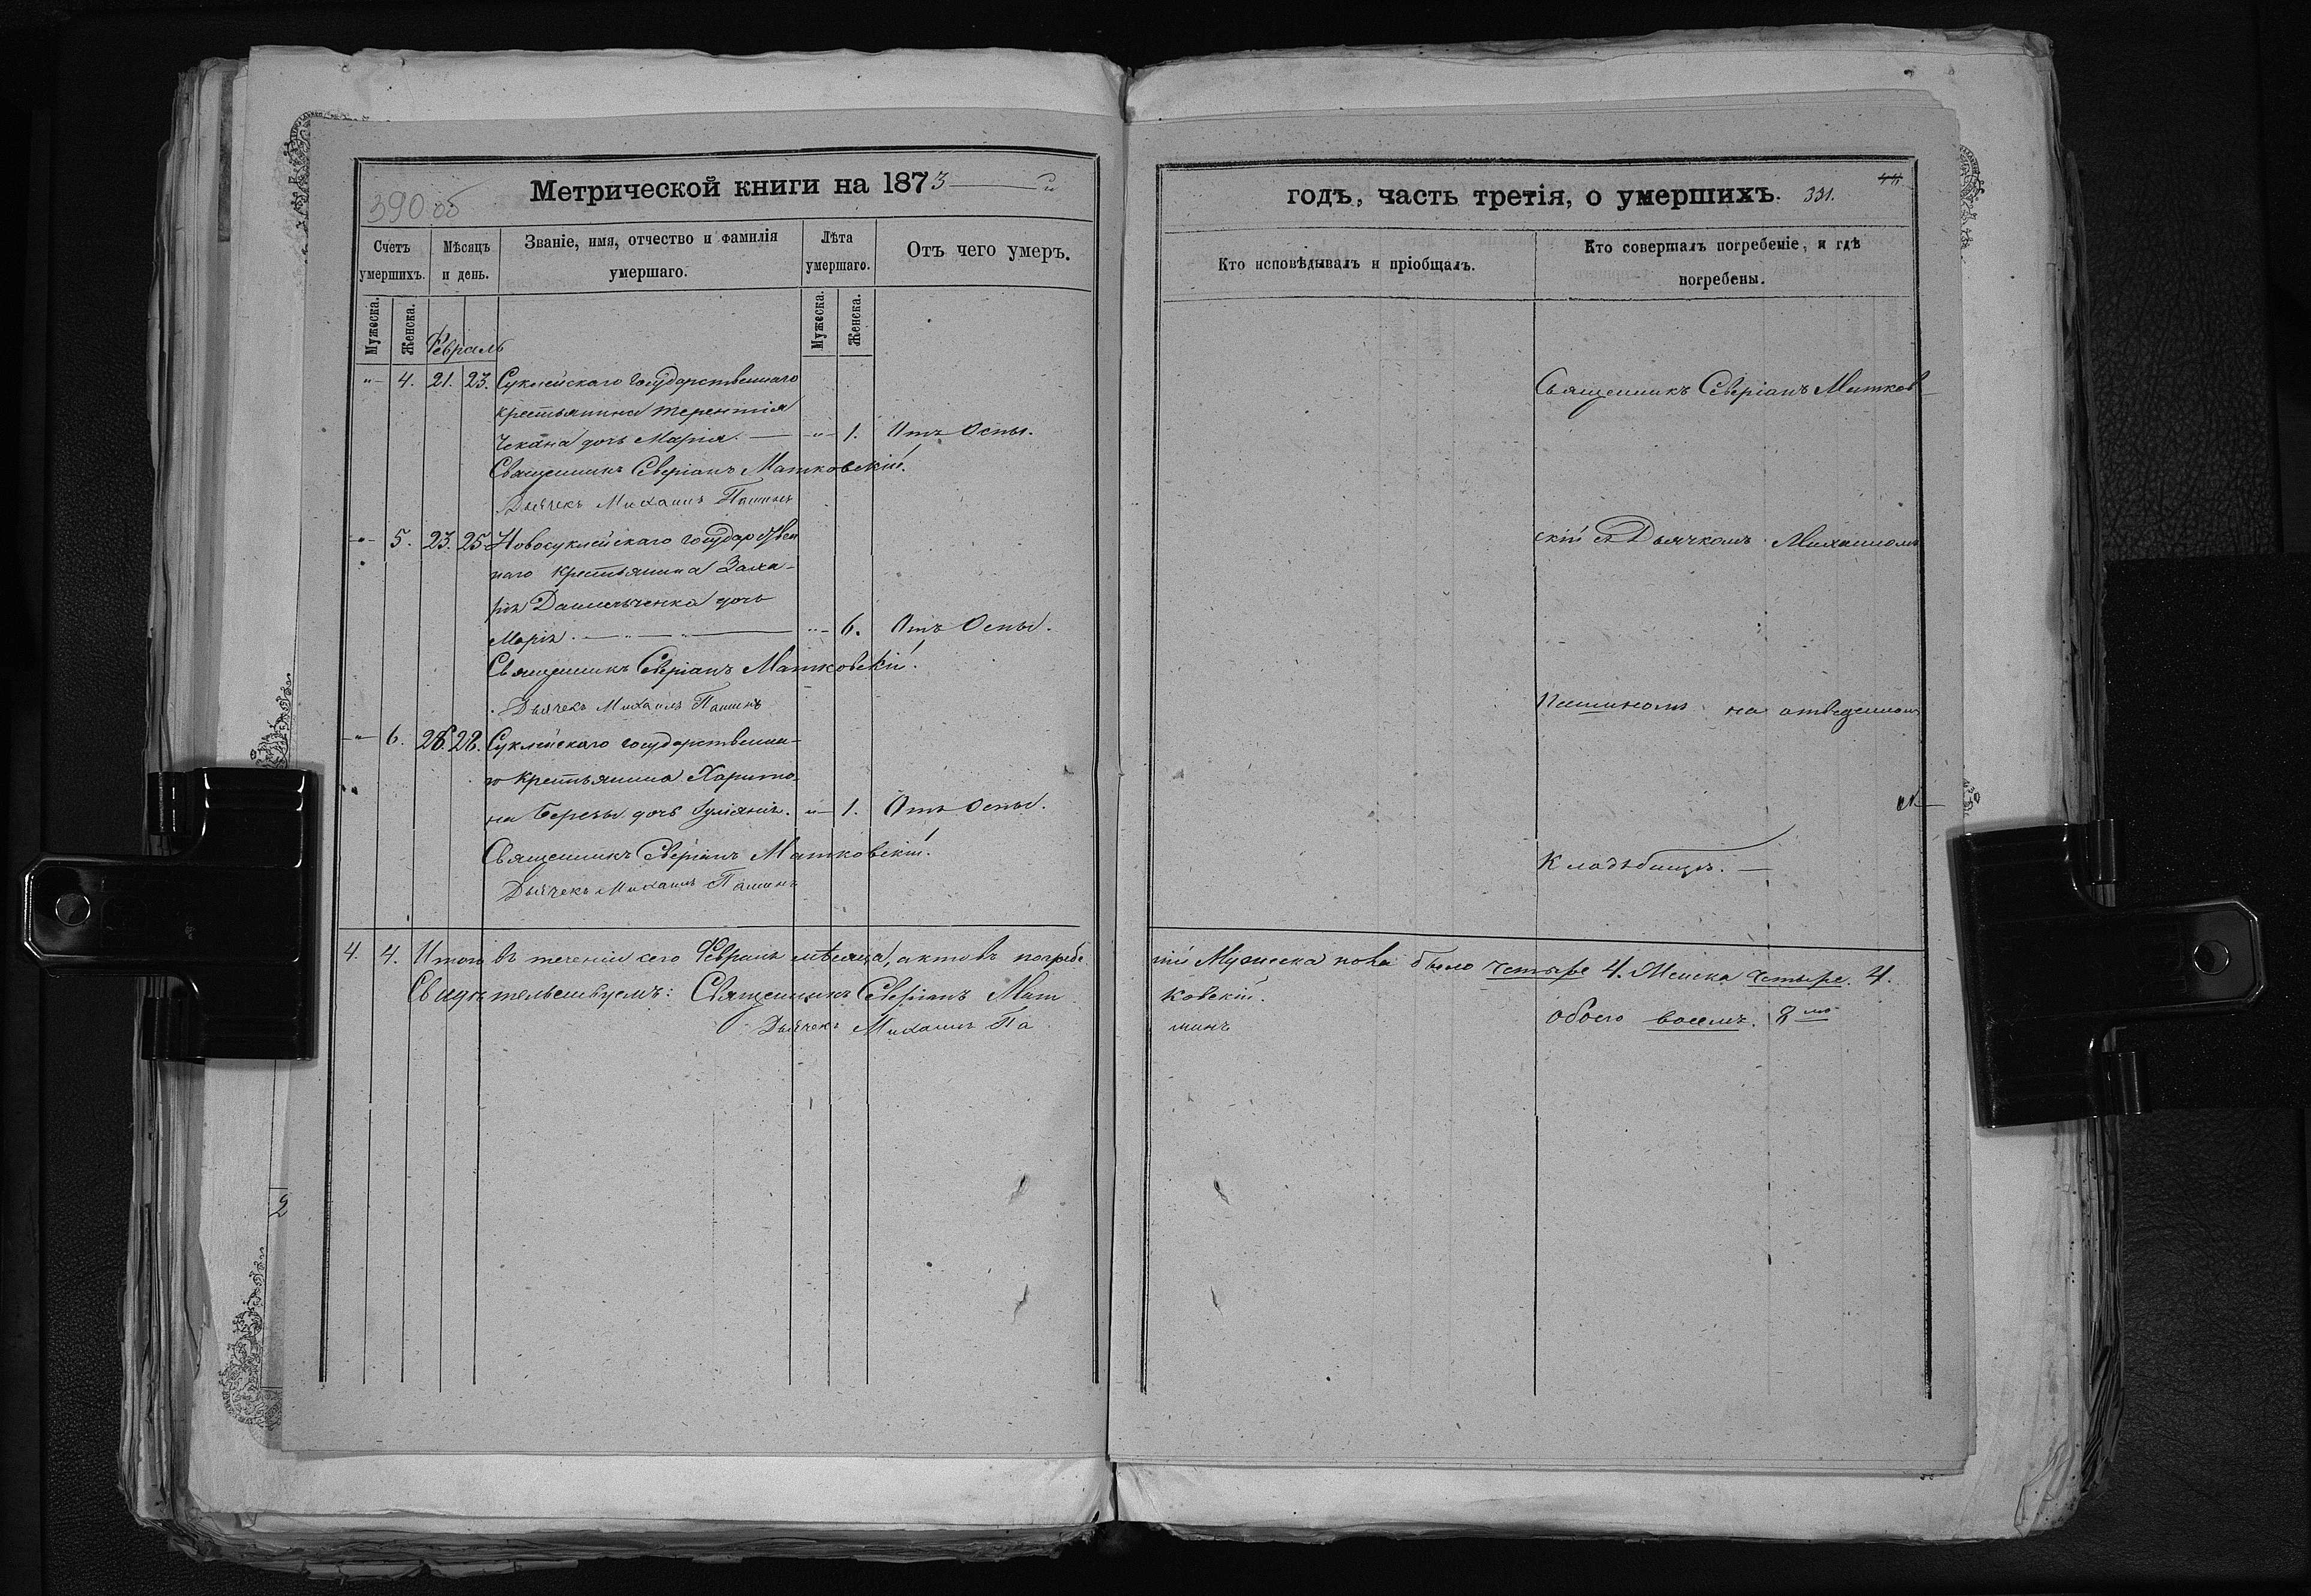 390 об
Метрической книги на 1873 й
Счетъ умершихъ.
Мѣсяцъ и день.
Званіе, имя, отчество и фамилія умершаго.
Лѣта умершаго.
Отъ чего умеръ.
Мужеска.
Женска.
Февраль
Мужеска.
Женска.
"- 4. 21. 23. Суклейскаго государственнаго
крестьянина Терентія
Чекана дочь Марія. — -"- 1. Отъ Оспы.
Священникъ Северіанъ Матковскій.
Дьячекъ Михаилъ Пашинъ
-"- 5. 23. 25 Новосуклейскаго государствен
наго крестьянина Заха-
рія
дочь
Марія. — " — "- 6. Отъ Оспы.
Священникъ Северіанъ Матковскій.
Дьячекъ Михаилъ Пашинъ
-"- 6. 26. 28. Суклейскаго государственна-
го крестьянина Харито-
на Березы дочь Іуліанія. "- 1. Отъ Оспы.
Священникъ Северіанъ Матковскій.
Дьячекъ Михаилъ Пашинъ
4. 4. Итого въ теченіи сего Февраля мѣсяца, актовъ погребе
Свидѣтельствуемъ: Священникъ Северіанъ Мат
Дьячекъ Михаилъ Па
годъ, часть третія, о умершихъ.
331.
Кто исповѣдывалъ и пріобщалъ.
Кто совершалъ погребеніе, и гдѣ погребены.
Священникъ Северіанъ Матков
скій съ Дьячкомъ Михаиломъ
Пашиномъ на отведенномъ
Кладбищѣ. —
нія Мужеска пола было четыре 4. Женска четыре. 4.
ковскій.
обоего восемь. 8
шинъ